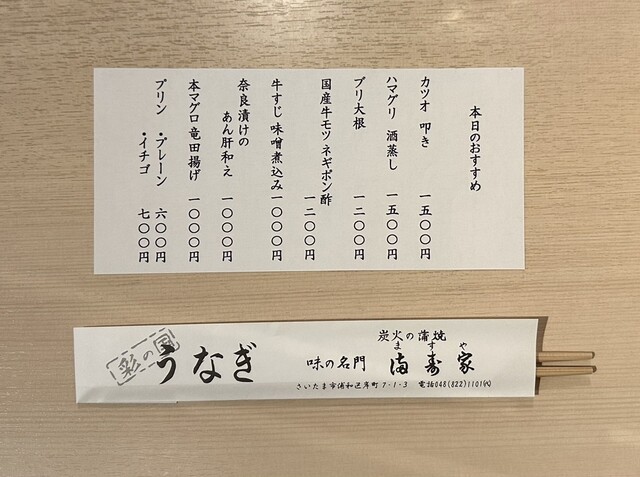 本日のおすすめ
カツオ 叩き 一五〇〇円
ハマグリ 酒蒸し 一五〇〇円
ブリ大根 一二〇〇円
国産牛モツ ネギポン酢 一二〇〇円
牛すじ 味噌煮込み 一〇〇〇円
奈良漬けの
あん肝和え 一〇〇〇円
本マグロ 竜田揚げ 一〇〇〇円
プリン ・プレーン 六〇〇円
・イチゴ 七〇〇円
彩の国
うなぎ
炭火の蒲焼
味の名門
ますや
満寿家
さいたま市浦和区岸町7-1-3 電話048(822)1101(代)